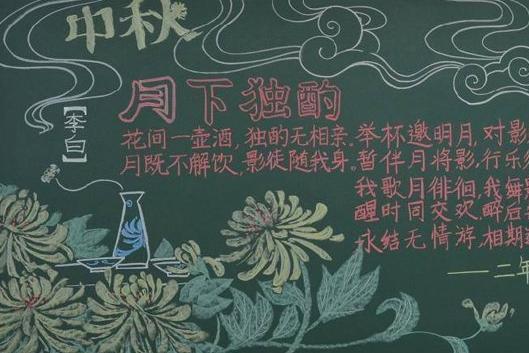 中秋
月下独酌
【李白】
花间一壶酒,独酌无相亲。举杯邀明月,对影
月既不解饮,影徒随我身。暂伴月将影,行乐
我歌月徘徊,我舞
醒时同交欢,醉后
永结无情游,相期
——二年